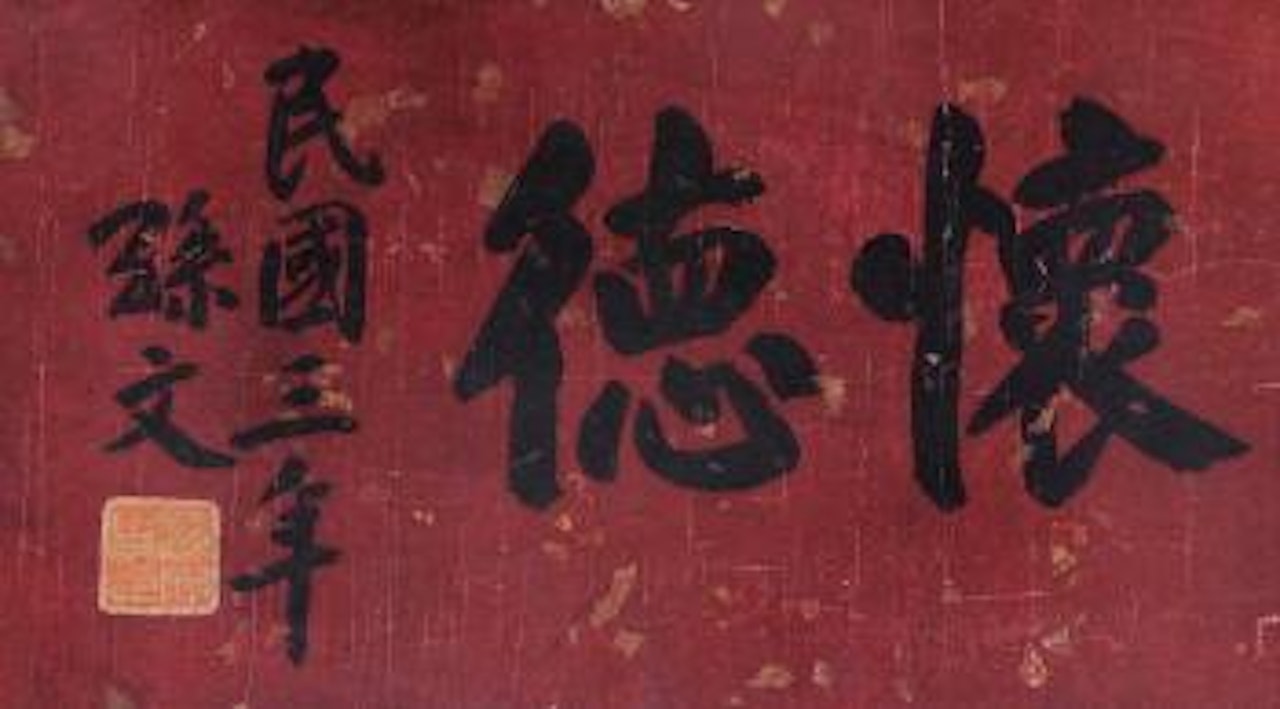 懷德
民國三年
孫文